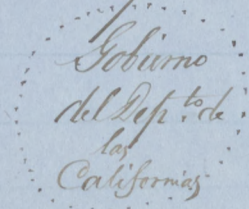 Gobierno
del Dep.to de
las
Californias